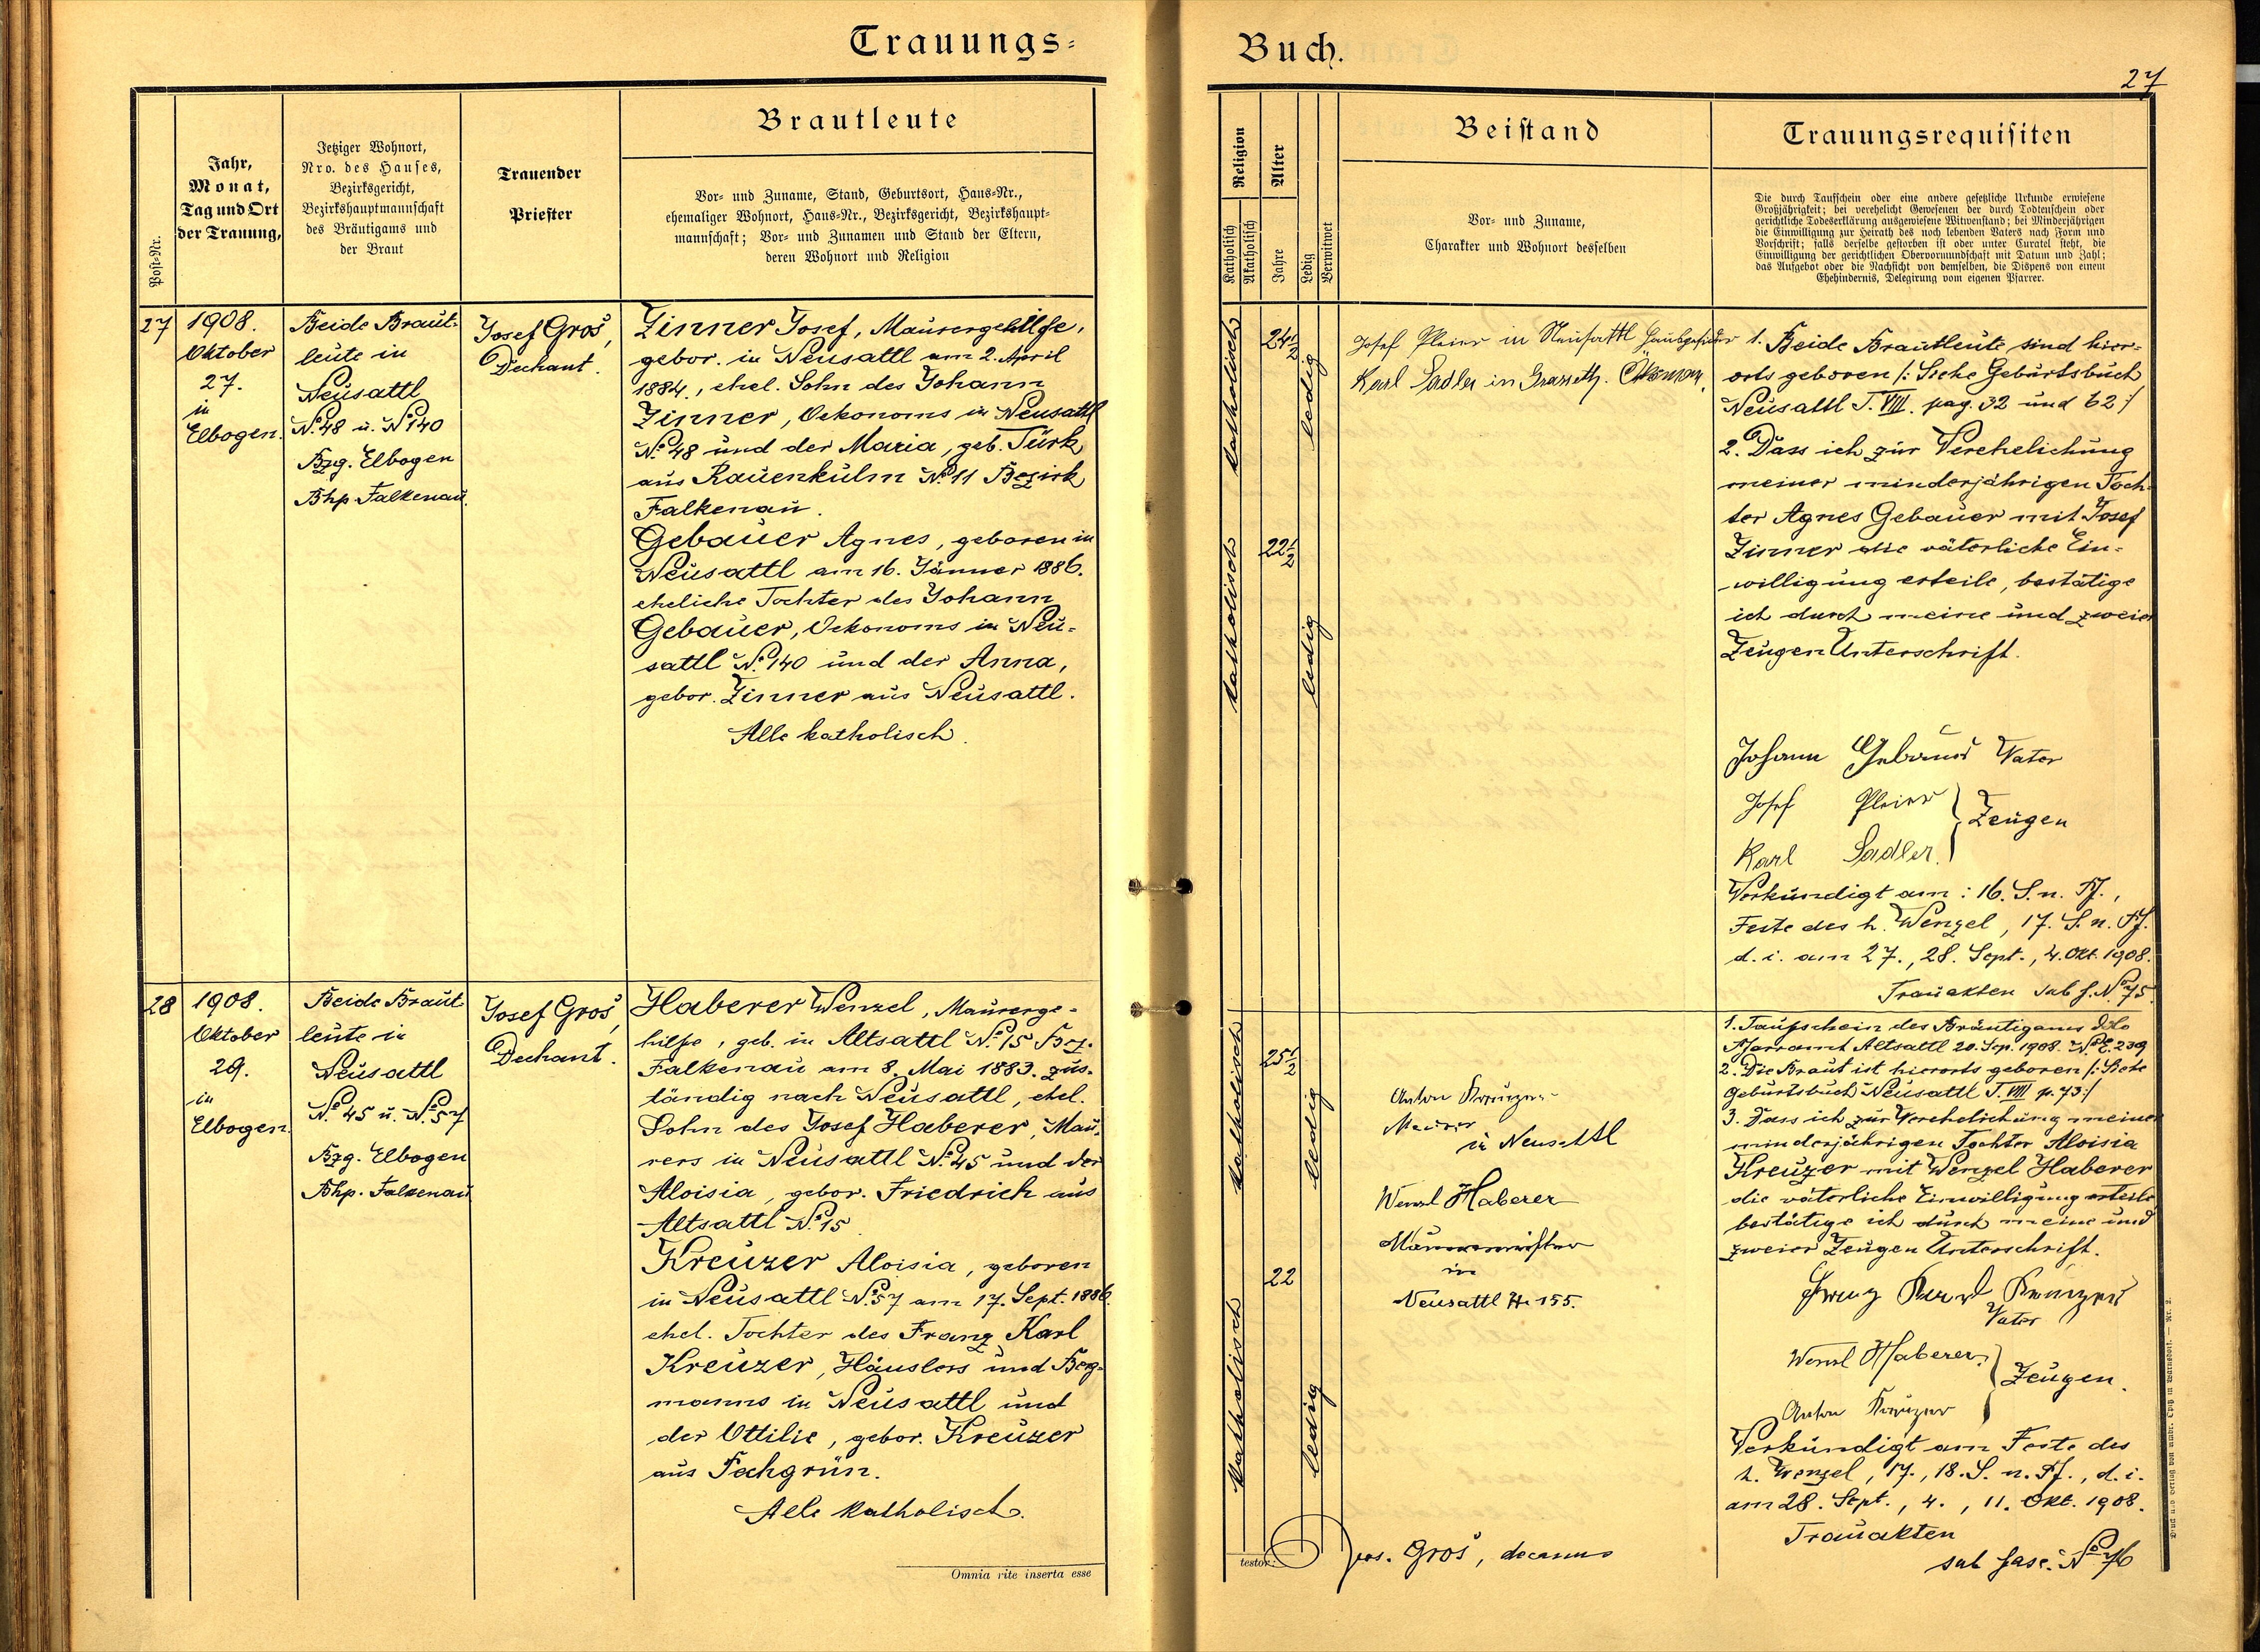 Trauungs-
Buch.
27
Post-Nr.
Jahr,
Monat,
Tag und Ort
der Trauung,
Jetziger Wohnort,
Nro. des Hauses,
Bezirksgericht,
Bezirkshauptmannschaft
des Bräutigams und
der Braut
Trauender
Priester
Brautleute
Vor- und Zuname, Stand, Geburtsort, Haus-Nr.,
ehemaliger Wohnort, Haus-Nr., Bezirksgericht, Bezirkshaupt-
mannschaft; Vor- und Zunamen und Stand der Eltern,
deren Wohnort und Religion
Religion
Katholisch
Akatholisch
Alter
Jahre
Ledig
Verwitwet
Beistand
Vor- und Zuname,
Charakter und Wohnort desselben
Trauungsrequisiten
Die durch Taufschein oder eine andere gesetzliche Urkunde erwiesene
Großjährigkeit; bei verehelicht Gewesenen der durch Todtenschein oder
gerichtliche Todeserklärung ausgewiesene Witwenstand; bei Minderjährigen
die Einwilligung zur Heirath des noch lebenden Vaters nach Form und
Vorschrift; falls derselbe gestorben ist oder unter Curatel steht, die
Einwilligung der gerichtlichen Obervormundschaft mit Datum und Zahl;
das Aufgebot oder die Nachsicht von demselben, die Dispens von einem
Ehehindernis, Delegirung vom eigenen Pfarrer.
27
1908.
Oktober
27.
in
Elbogen.
Beide Braut-
leute in
Neusattl
No. 48 u. No 140
Bzg. Elbogen
Bhp. Falkenau.
Josef Groš,
Dechant.
Zinner Josef, Maurergehilfe,
gebor. in Neusattl am 2. April
1884., ehel. Sohn des Johann
Zinner, Oekonoms in Neusattl
No. 48 und der Maria, geb. Türk
aus Rauenkulm No. 11 Bezirk
Falkenau.
Gebauer Agnes, geboren in
Neusattl am 16. Jänner 1886.
eheliche Tochter des Johann
Gebauer, Oekonoms in Neu-
sattl No. 140 und der Anna,
gebor. Zinner aus Neusattl.
Alle katholisch.
katholisch
24 1/2
ledig
katholisch
22 1/2
ledig
Josef Pleier in Neusattl Hausbesitzer
Karl Sadler in Grasseth. Ökonom.
1. Beide Brautleute sind hier-
orts geboren /: Siehe Geburtsbuch
Neusattl T. VIII. pag. 32 und 62 :/
2. Dass ich zur Verehelichung
meiner minderjährigen Toch-
ter Agnes Gebauer mit Josef
Zinner die väterliche Ein-
willigung erteile, bestätige
ich durch meine und zweier
Zeugen Unterschrift.
Johann Gebauer Vater
Josef Pleier
Karl Sadler.
Zeugen
Verkündigt am: 16. S. n. Pf.,
Feste des h. Wenzel, 17. S. n. Pf.
d. i. am 27., 28. Sept., 4. Okt. 1908.
Trauakten sub f. No 75.
28
1908.
Oktober
29.
in
Elbogen.
Beide Braut
leute in
Neusattl
No. 45 u. No. 57
Bzg. Elbogen
Bhp. Falkenau
Josef Groš,
Dechant.
Haberer Wenzel, Maurerge-
hilfe, geb. in Altsattl No. 15 Bez.
Falkenau am 8. Mai 1883. zus-
tändig nach Neusattl, ehel.
Sohn des Josef Haberer, Mau-
rers in Neusattl No. 45 und der
Aloisia, gebor. Friedrich aus
Altsattl No. 15
Kreuzer Aloisia, geboren
in Neusattl No. 57 am 17. Sept. 1886.
ehel. Tochter des Franz Karl
Kreuzer, Häuslers und Berg-
manns in Neusattl und
der Ottilie, gebor. Kreuzer
aus Fachgrün.
Alle katholisch.
Omnia rite inserta esse
katholisch
25 1/2
ledig
katholisch
22
ledig
Anton Kreuzer
Maurer
in Neusattl
Wenzl Haberer
Maurermeister
in
Neusattl H. 155.
testor:
Jos. Groš, decanus
1. Taufschein des Bräutigams ddo
Pfarramt Altsattl 20. Sep. 1908. No E. 239
2. Die Braut ist hierorts geboren /: Siehe
Geburtsbuch Neusattl T. VIII p. 73 :/
3. Dass ich zur Verehelichung meiner
minderjährigen Tochter Aloisia
Kreuzer mit Wenzel Haberer
die väterliche Einwilligung erteile,
bestätige ich durch meine und
zweier Zeugen Unterschrift.
Franz Karl Kreuzer
Vater
Wenzl Haberer.
Anton Kreuzer
Zeugen.
Verkündigt am Feste des
h. Wenzel, 17., 18. S. n. Pf., d. i.
am 28. Sept., 4., 11. Okt. 1908.
Trauakten
sub fasc. No 76